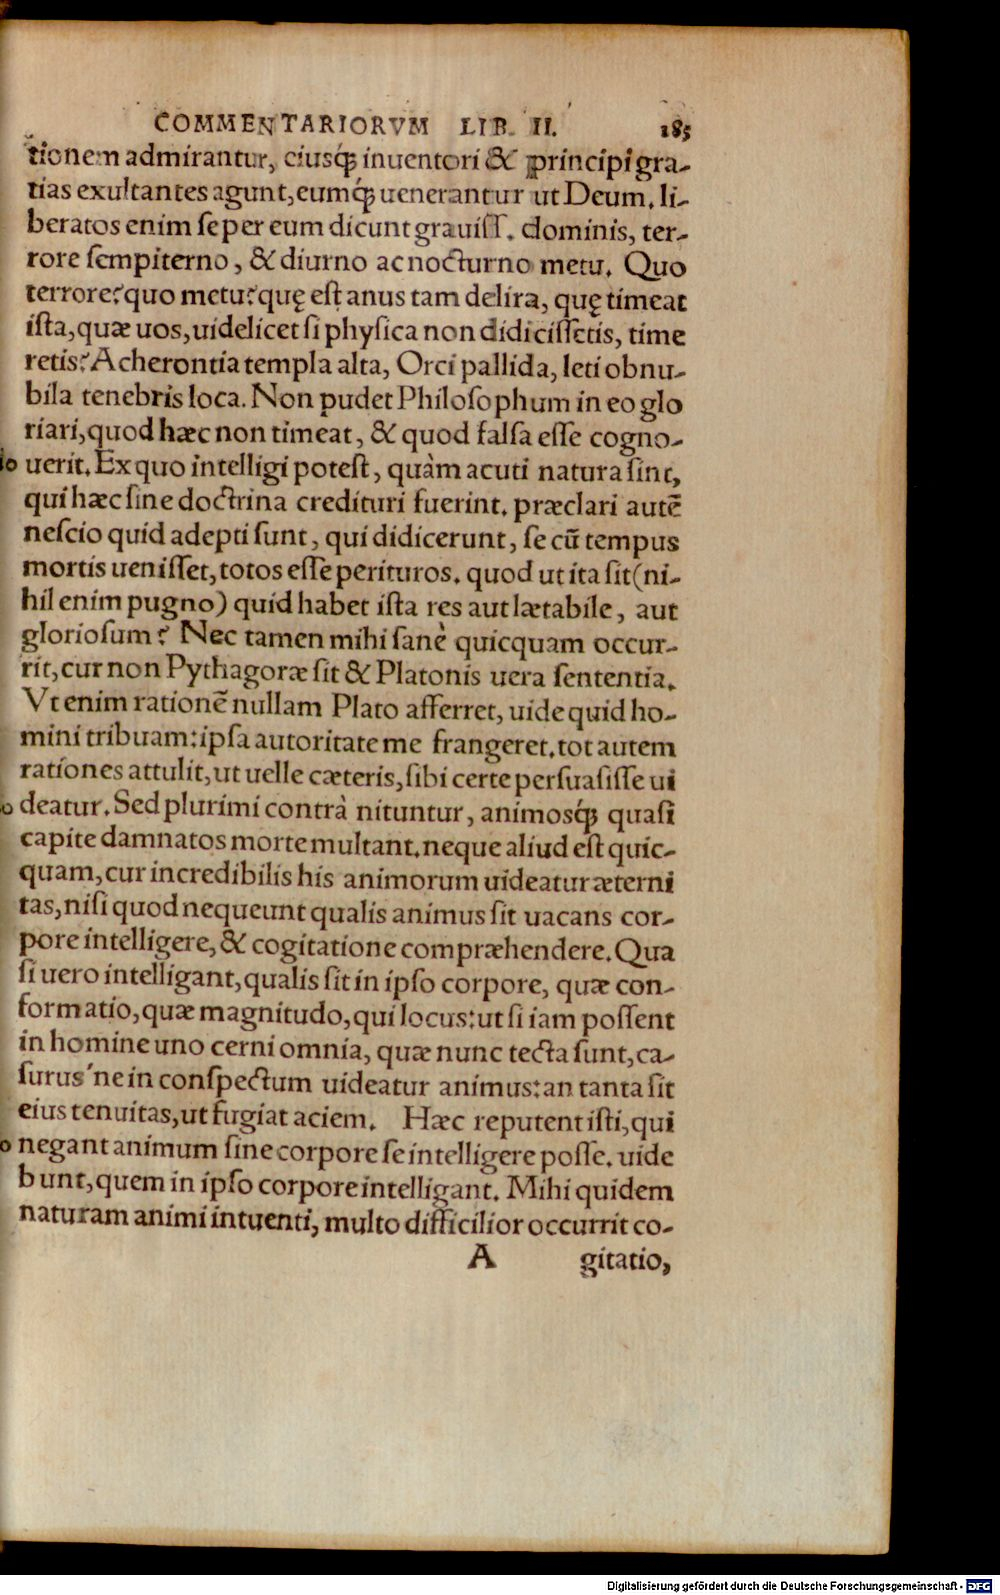 COMMENTARIORVM LIB. II. 185
tionem admirantur, eiusq́; inuentori & principi gra-
tias exultantes agunt, eumq́; uenerantur ut Deum. li-
beratos enim se per eum dicunt grauiss. dominis, ter-
rore sempiterno, & diurno ac nocturno metu. Quo
terrore? quo metu? quę est anus tam delira, quę timeat
ista, quæ uos, uidelicet si physica non didicissetis, time
retis? Acherontia templa alta, Orci pallida, leti obnu-
bila tenebris loca. Non pudet Philosophum in eo glo
riari, quod hæc non timeat, & quod falsa esse cogno-
10 uerit. Ex quo intelligi potest, quàm acuti natura sint,
qui hæc sine doctrina credituri fuerint. præclari autē
nescio quid adepti sunt, qui didicerunt, se cū tempus
mortis uenisset, totos esse perituros. quod ut ita sit (ni-
hil enim pugno) quid habet ista res aut lætabile, aut
gloriosum? Nec tamen mihi sanè quicquam occur-
rit, cur non Pythagoræ sit & Platonis uera sententia.
Vt enim rationē nullam Plato afferret, uide quid ho-
mini tribuam: ipsa autoritate me frangeret. tot autem
rationes attulit, ut uelle cæteris, sibi certe persuasisse ui
o deatur. Sed plurimi contrà nituntur, animosq́; quasi
capite damnatos morte multant. neque aliud est quic-
quam, cur incredibilis his animorum uideatur æterni
tas, nisi quod nequeunt qualis animus sit uacans cor-
pore intelligere, & cogitatione compræhendere. Qua
si uero intelligant, qualis sit in ipso corpore, quæ con-
formatio, quæ magnitudo, qui locus: ut si iam possent
in homine uno cerni omnia, quæ nunc tecta sunt, ca-
surus'ne in conspectum uideatur animus: an tanta sit
eius tenuitas, ut fugiat aciem. Hæc reputent isti, qui
o negant animum sine corpore se intelligere posse. uide
bunt, quem in ipso corpore intelligant. Mihi quidem
naturam animi intuenti, multo difficilior occurrit co-
A gitatio,
Digitalisierung gefördert durch die Deutsche Forschungsgemeinschaft - DFG